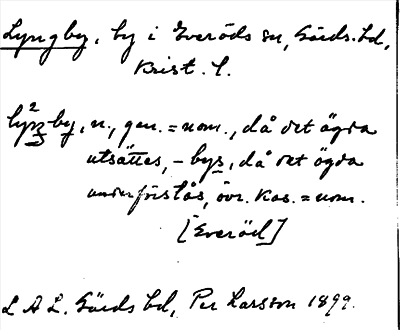 Lyngby, by i Everöds sn, Gärds hd,
Krist. l.
by, n., gen. = nom., då det ägda
utsättes, - bys, då det ägda
underförstås, övr. kas. = nom.
[Everöd]
L A L. Gärds hd, Per Larsson 1899.